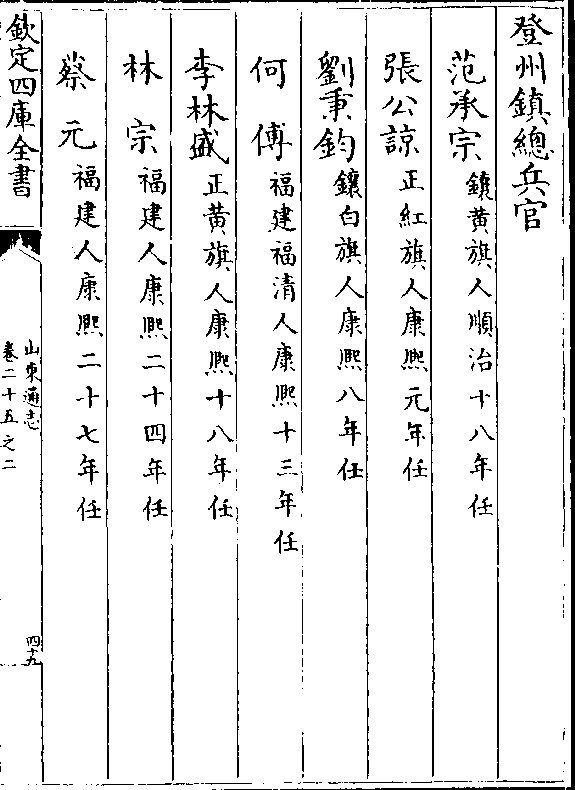 登州鎮總兵官
范承宗鑲黄旗人順治十八年任
張公諒正紅旗人康熙元年任
劉秉鈞鑲白旗人康熙八年任
何傅福建福清人康熙十三年任
李林盛正黄旗人康熙十八年任
林宗福建人康熙二十四年任
蔡元福建人康熙二十七年任
欽定四庫全書
山東通志
卷二十五之二
四十九